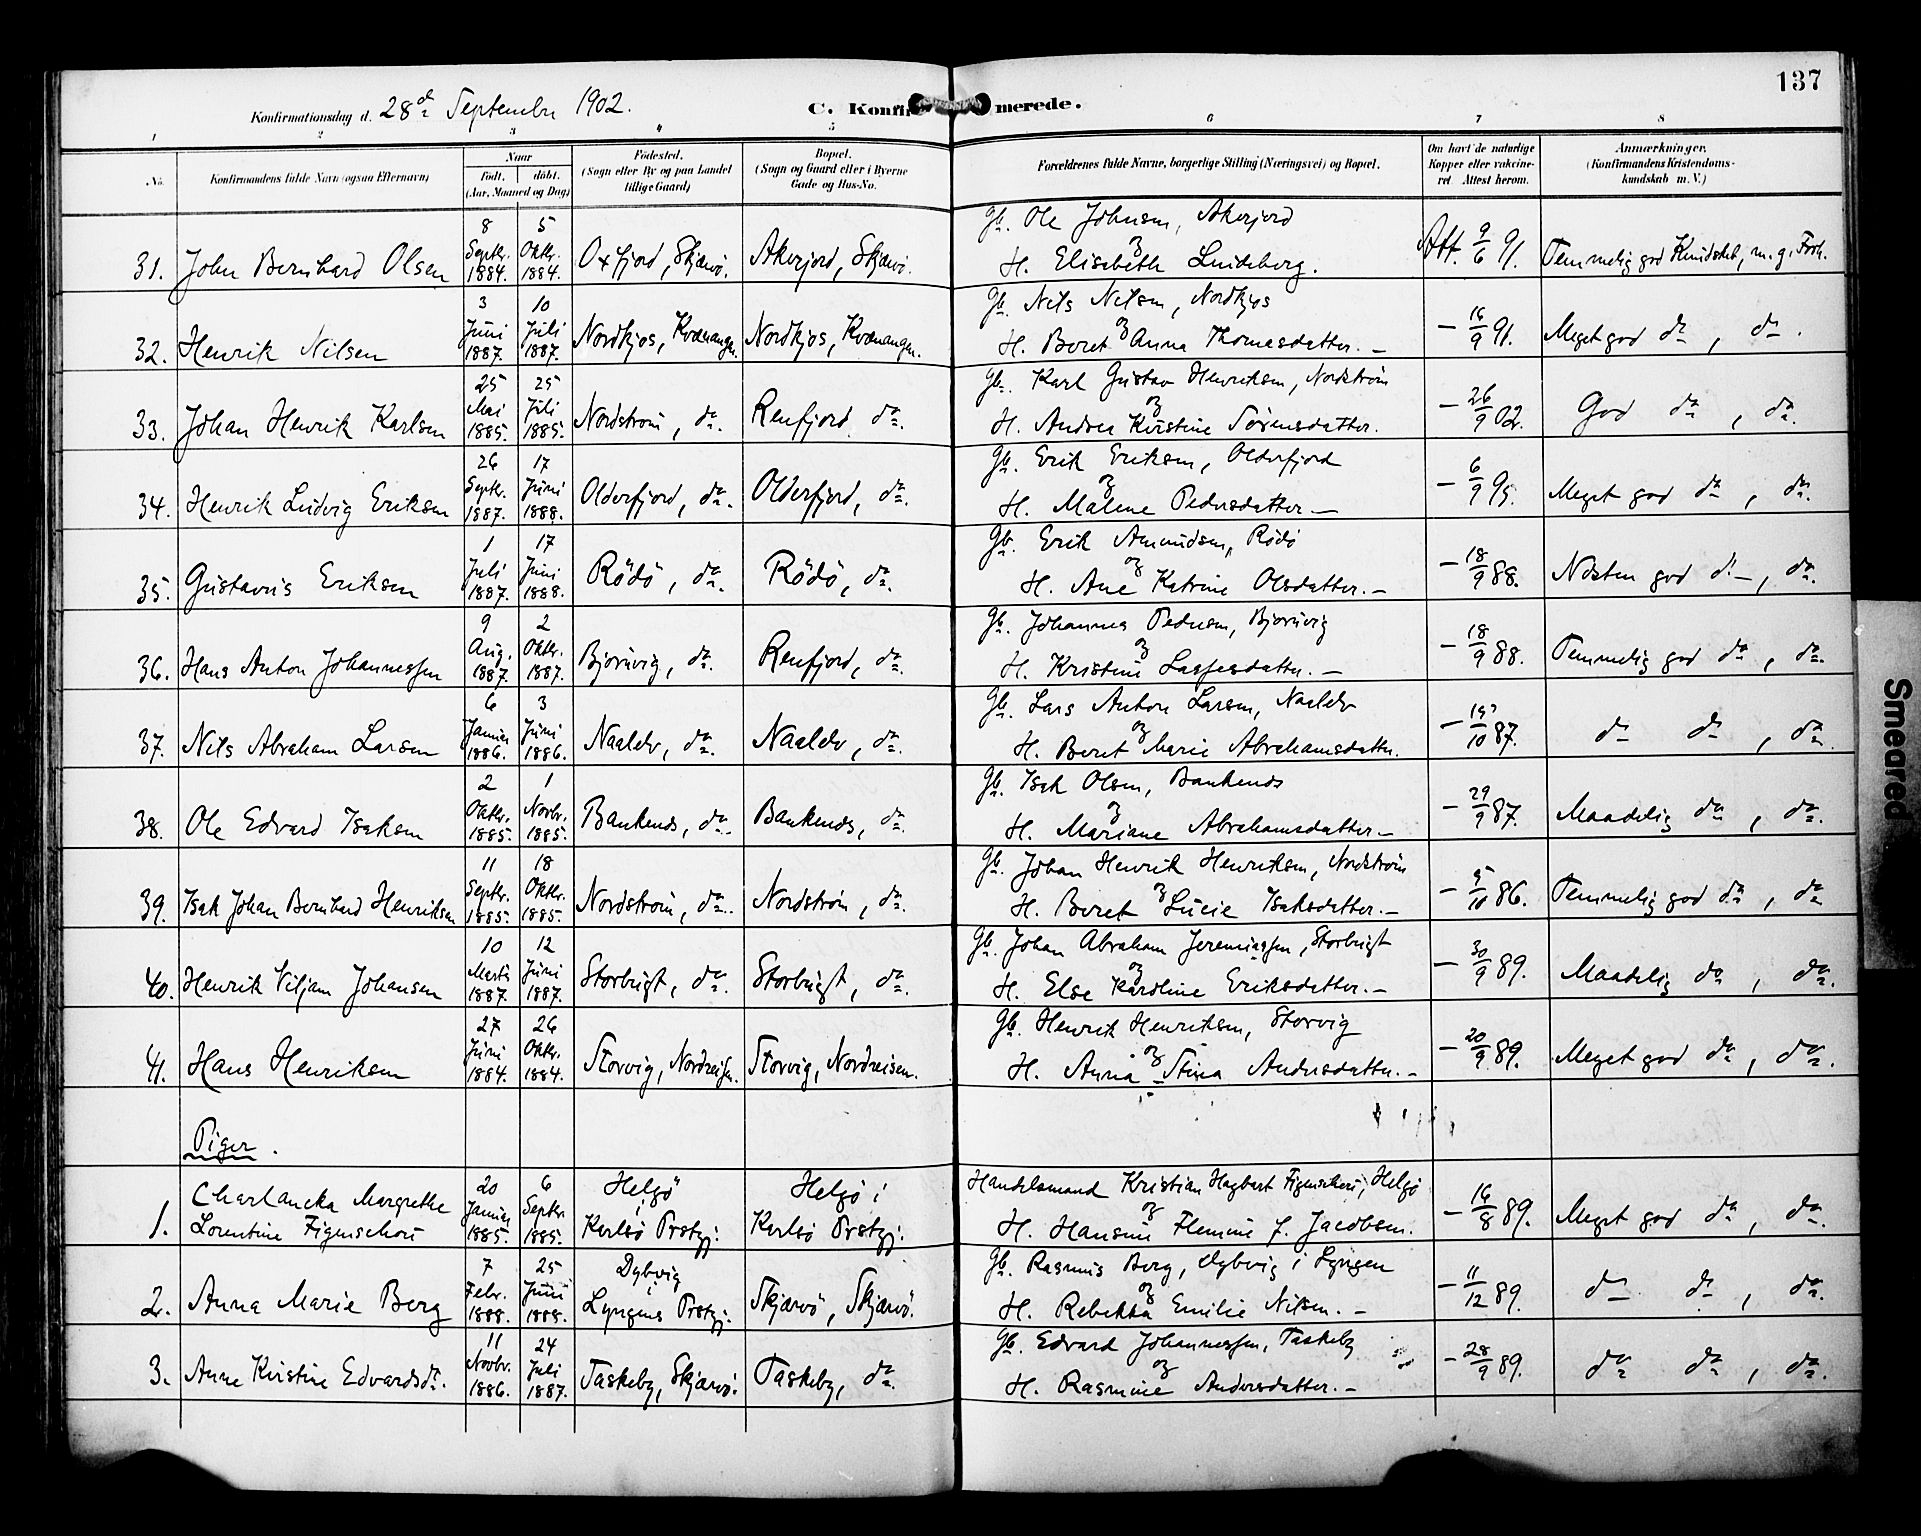 137
Konfirmationsdag d. 28de Septembr 1902.
C. Konfirmerede.
1 2 3 4 5 6 7 8
No.
Konfirmandens fulde Navn (ogsaa Efternavn)
Naar
Født. døbt.
(Aar, Maaned og Dag)
Fødested.
(Sogn eller By og paa Landet
tillige Gaard)
Bopæl.
(Sogn og Gaard eller i Byerne
Gade og Hus-No.
Forældrenes fulde Navne, borgerlige Stilling (Næringsvei) og Bopæl.
Om havt de naturlige
Kopper eller vakcine-
ret. Attest herom.
Anmærkninger.
(Konfirmandens Kristendoms-
kundskab m. V.)
31. John Bernhard Olsen 8 Septbr. 1884. 5 Oktbr. 1884. Oxfjord, Skjærvö. Akerjord, Skjærvö. Gb. Ole Johnsen, Akerjord
og
H. Elisabeth Lindeberg. Att. 9/6 91. Temmelig god Kundskab, m. g. Forh.
32. Henrik Nilsen 3 Juni 1887. 10 Juli 1887. Nordkjos, Kvænangen. Nordkjos, Kvænangen. Gb. Nils Nilsen, Nordkjos
og
H. Beret Anna Thomasdatter. – – 16/9 91. Meget god do, do.
33. Johan Henrik Karlsen 25 Mai 1885. 25 Juli 1885. Nordström, do. Renfjord, do. Gb. Karl Gustav Henriksen, Nordström
og
H. Andrea Kirstine Sørensdatter. – 26/9 02. God do, do.
34. Henrik Ludvig Eriksen 26 Septbr. 1887. 17 Juni 1888. Olderfjord, do. Olderfjord, do. Gb. Erik Eriksen, Olderfjord
og
H. Malene Pedersdatter. – – 6/9 95. Meget god do, do.
35. Gustavus Eriksen 1 Juli 1887. 17 Juni 1888. Rödö, do. Rödö, do. Gb. Erik Amundsen, Rödö
og
H. Ane Katrine Olsdatter. – – 18/9 88. Næsten god do, do.
36. Hans Anton Johannessen 9 Aug. 1887. 2 Oktbr. 1887. Bjørnvig, do. Renfjord, do. Gb. Johannes Pedersen, Bjørnvig
og
H. Kristine Lassesdatter. – – 18/9 88. Temmelig god do, do.
37. Nils Abraham Larsen 6 Januar 1886. 3 Juni 1886. Naaelv, do. Naaelv, do. Gb. Lars Anton Larsen, Naaelv
og
H. Beret Marie Abrahamsdatter. – 15/10 87. do do, do.
38. Ole Edvard Isaksen 2 Oktbr. 1885. 1 Novbr. 1885. Bankenes, do. Bankenes, do. Gb. Isak Olsen, Bankenes
og
H. Mariane Abrahamsdatter. – – 29/9 87. Maadelig do, do.
39. Isak Johan Bernhard Henriksen 11 Septbr. 1885. 18 Oktbr. 1885. Nordström, do. Nordström, do. Gb. Johan Henrik Henriksen, Nordström
og
H. Beret Lucie Isaksdatter. – – 5/10 86. Temmelig god do, do
40. Henrik Viljam Johansen 10 Marts 1887. 12 Juni 1887. Storbugt, do. Storbugt, do. Gb. Johan Abraham Jeremiassen, Storbugt
og
H. Else Karoline Eriksdatter. – – 30/9 89. Maadelig do, do.
41. Hans Henriksen 27 Juni 1884. 26 Oktbr. 1884. Storvig, Nordreisen. Storvig, Nordreisen. Gb. Henrik Henriksen, Storvig
og
H. Anna Stina Andersdatter. – – 20/9 89. Meget god do, do.
Piger.
1. Charlancka Margrethe
Lorentine Figenschou 20 Januar 1885. 6 Septbr 1885. Helgö i
Karlsö Prstgj. Helgö i
Karlsö Prstgj. Handelsmand Kristian Hagbart Figenschou, Helgö
og
H. Hansine Flemine f. Jacobsen. – 16/8 89. Meget god do, do.
2. Anna Marie Berg 7 Febr. 1888. 25 Juni 1888. Dybvig
i
Lyngens Prstgj. Skjærvö, Skjærvö. Gb. Rasmus Berg, Dybvig i Lyngen
og
H. Rebekka Emilie Nilsen. – – 11/12 89. do do, do.
3. Anne Kirstine Edvardsdr. 11 Novbr. 1886. 24 Juli 1887. Taskeby, Skjærvö. Taskeby, do. Gb. Edvard Johannessen, Taskeby
og
H. Rasmine Andersdatter. – – 28/9 89. do do, do.
Smeared